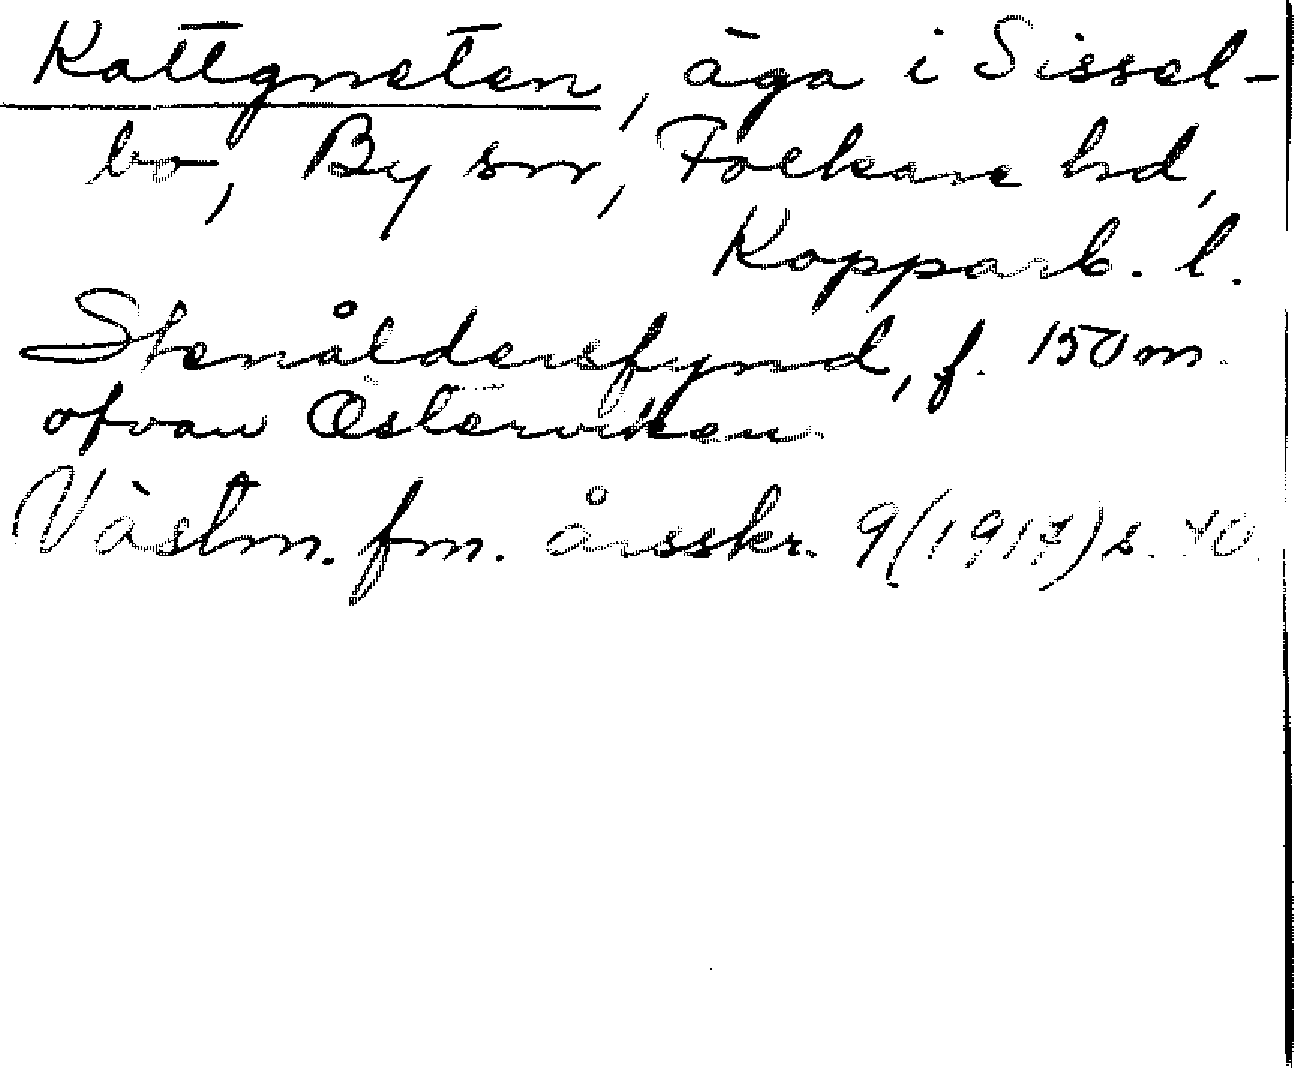 Kattgneten, äga i Sissel-
bo, By sn, Folkare hd,
Kopparb. l.
Stenåldersfynd, f. 150 m.
ofvan Österviken
Västm. fm. årsskr. 9 (1917) s. 40.